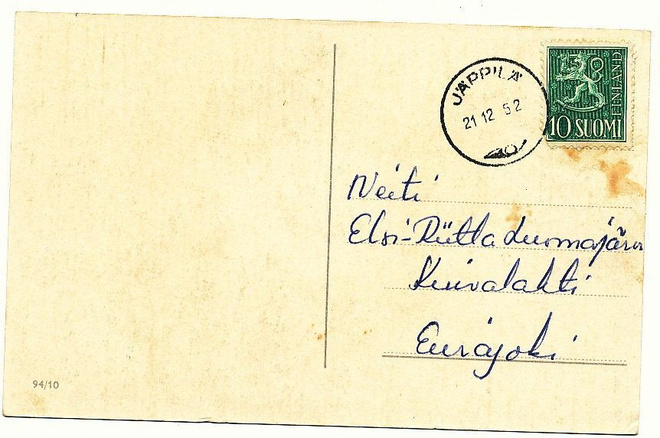 JÄPPILÄ
21 12 52
FINLAND
10 SUOMI
Neiti
Elsi-Riitta Luomajärvi
Kuivalahti
Eurajoki
94/10